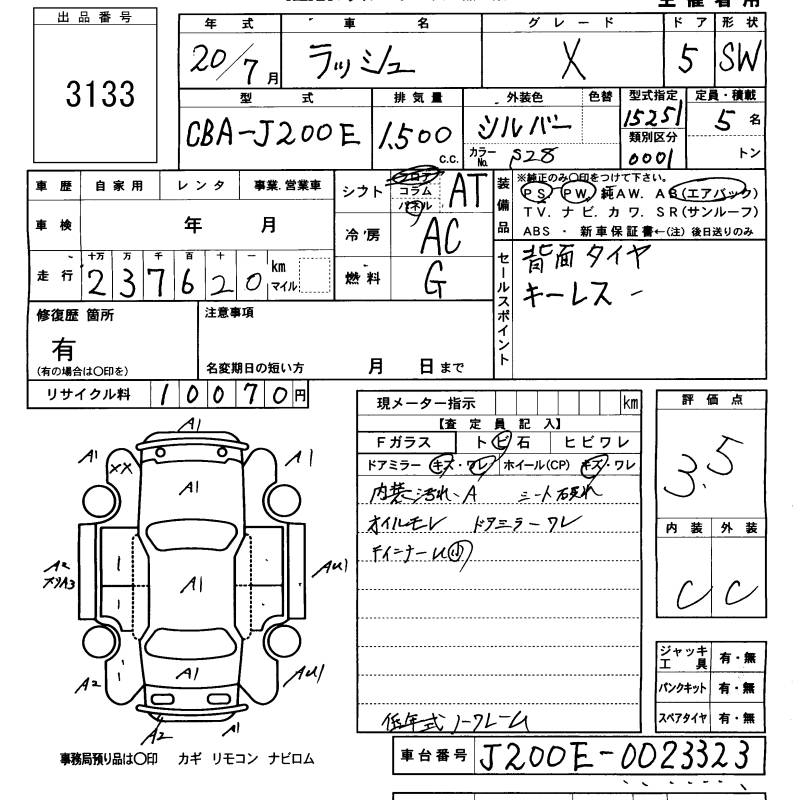 出品番号
3133
年式 車名 グレード ドア 形状
20/7月 ラッシュ X 5 SW
型式 排気量 外装色 色替 型式指定 定員・積載
CBA-J200E 1,500 c.c. シルバー 15251 5名
カラーNo. S28 類別区分 0001 トン
車歴 自家用 レンタ 事業.営業車
車検 年 月
走行 十万 万 千 百 十 一
237620 km マイル
シフト フロア コラム パネル AT
冷房 AC
燃料 G
装備品
※純正のみ○印をつけて下さい。
PS. PW. 純AW. AB(エアバック)
TV. ナビ. カワ. SR(サンルーフ)
ABS・新車保証書←(注)後日送りのみ
セールスポイント
背面タイヤ
キーレス
修復歴 箇所
有
(有の場合は○印を)
注意事項
名変期日の短い方 月 日まで
リサイクル料 10070円
現メーター指示 km
【査定員記入】
Fガラス トビ石 ヒビワレ
ドアミラー キズ・ワレ ホイール(CP) キズ・ワレ
内装汚れ、A シート破れ
オイルモレ ドアミラーワレ
低年式
評価点
3.5
内装 外装
C C
A1
A1 XX A1
A1
A2 A1 AU1
A2 A1 AU1
A2 A1
ジャッキ工具 有・無
パンクキット 有・無
スペアタイヤ 有・無
事務局預り品は○印 カギ リモコン ナビロム
車台番号 J200E-0023323